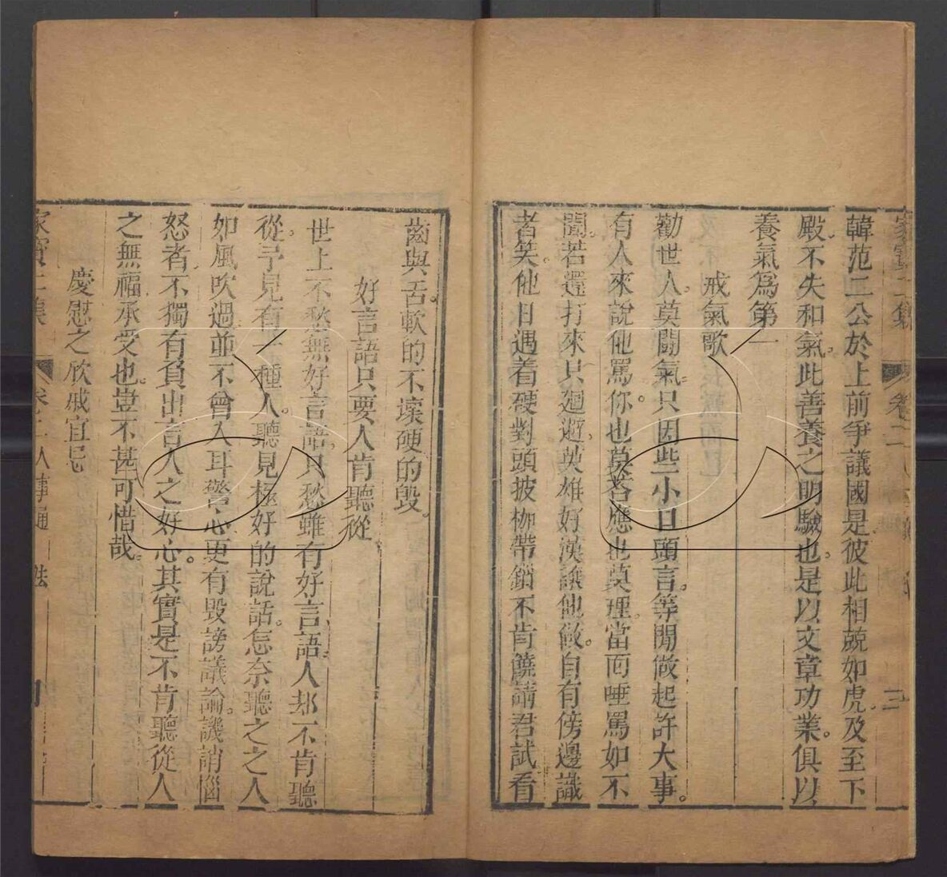 韓范二公於上前爭議國是彼此相競如虎。及至下
殿。不失和氣。此善養之明驗也。是以文章功業。俱以
養氣爲第一
戒氣歌
勸世人。莫鬪氣。只因些小日頭言。等閒做起許大事。
有人來說他罵你。也莫答應也莫理。當面唾罵如不
聞。若還打來只廻避。英雄好漢讓他做。自有傍邊識
者笑。他日遇着硬對頭。披枷帶鎖不肯饒。請君試看
齒與舌。軟的不壞硬的毀。
好言語只要人肯聽從
世上不愁無好言語。只愁雖有好言語。人却不肯聽
從。予見有一種人。聽見極好的說話。怎奈聽之之人
如風吹過。並不曾入耳警心。更有毀謗議論。譏誚惱
怒者。不獨有負出言人之好心。其實是不肯聽從人
之無福承受也。豈不甚可惜哉。
慶慰之欣戚宜忌
家寶二集 卷二人事通